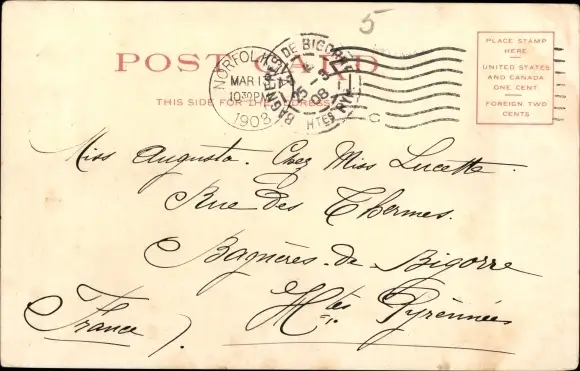 5
POST CARD
THIS SIDE FOR THE ADDRESS
NORFOLK, VA.
MAR 13
1030PM
1908
C
BAGNERES DE BIGORRE
25 -3 08
HTES PYR
PLACE STAMP
HERE
UNITED STATES
AND CANADA
ONE CENT
FOREIGN TWO
CENTS
Miss Augusta. Chez Miss Lucette.
Rue des Thermes.
Bagnères-de-Bigorre
Htes Pyrénnées
France).